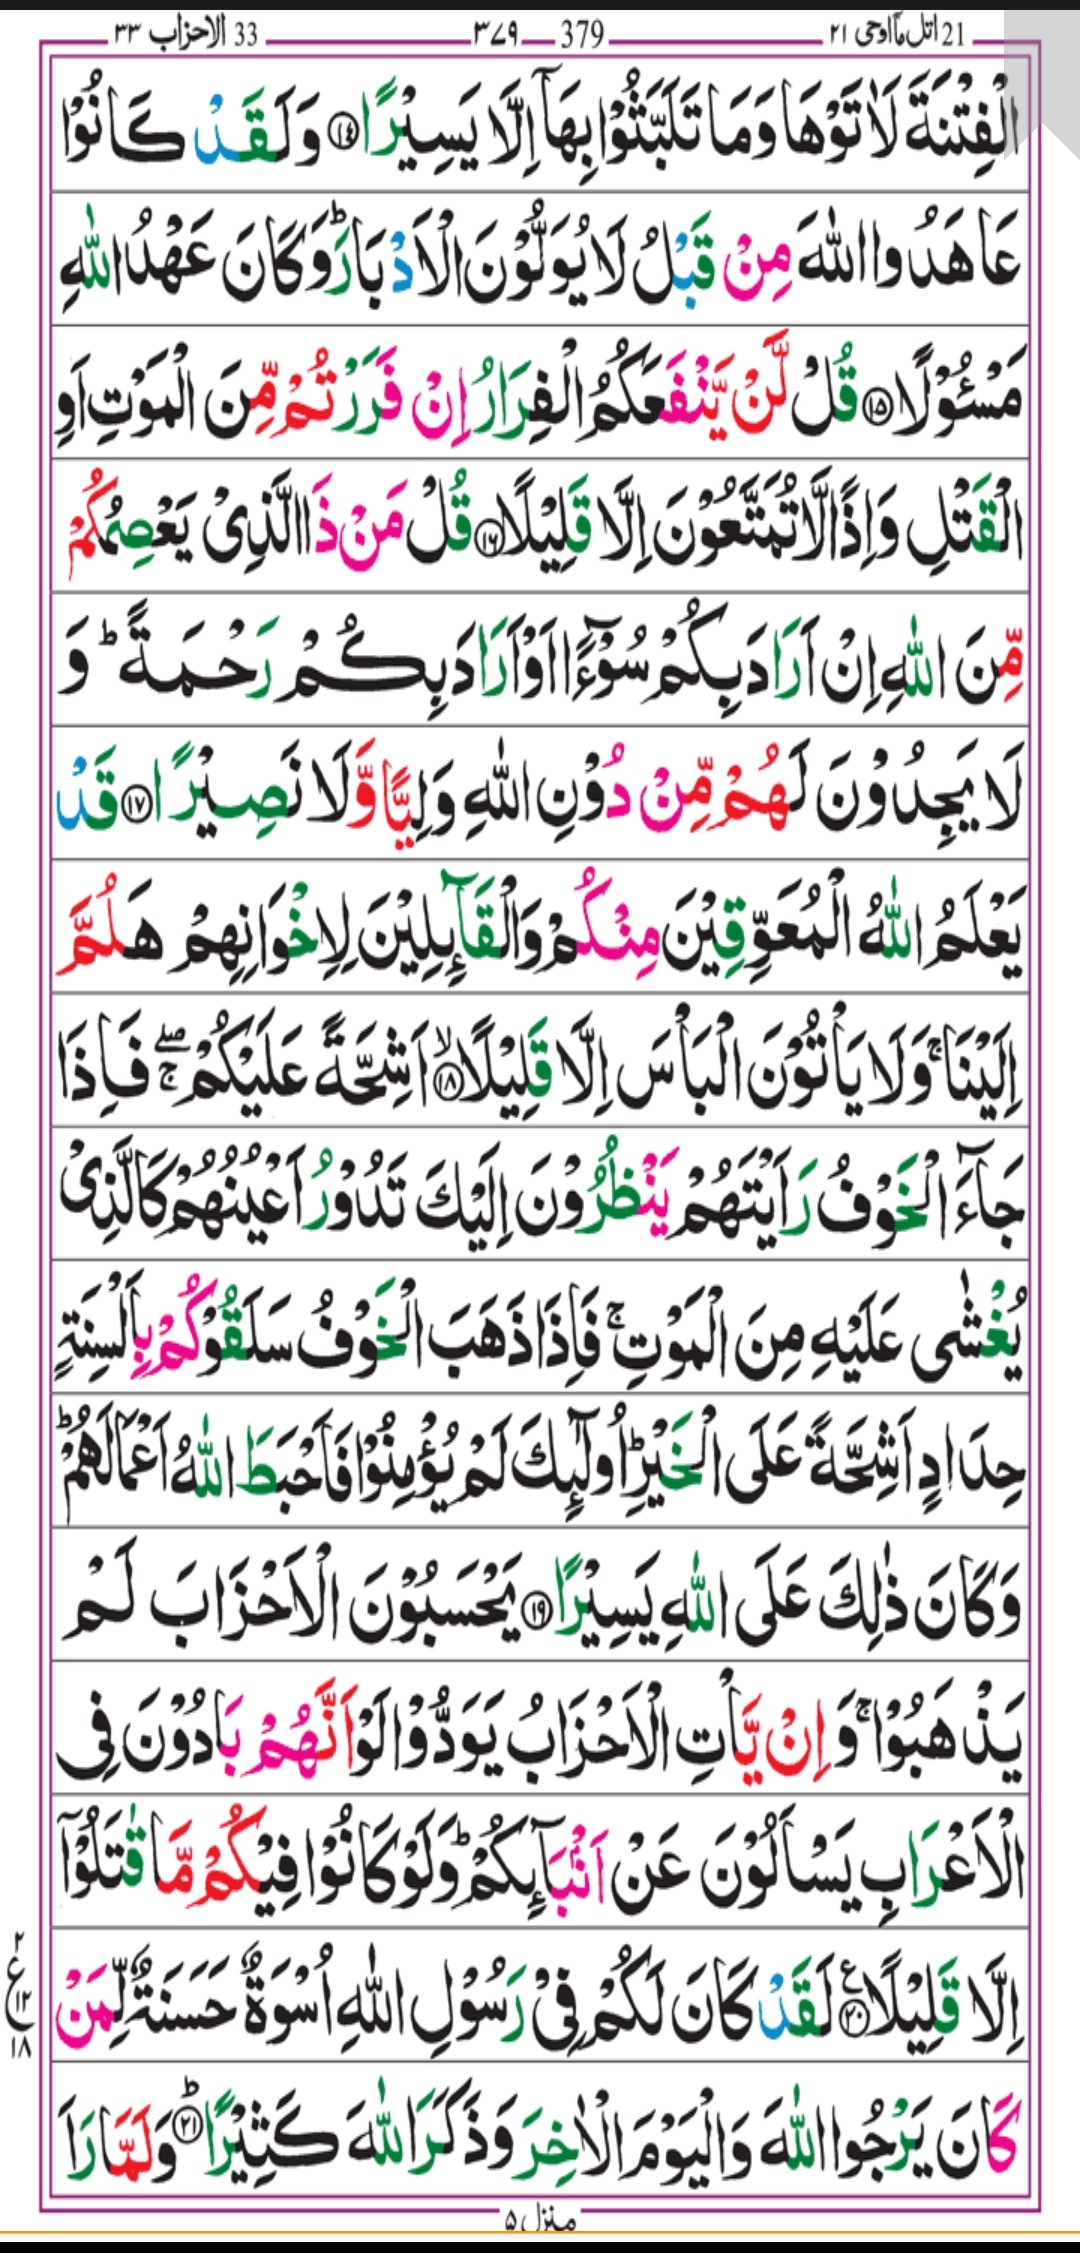 21 اتل مآاوحی ٢١ 379 ٣٧٩ 33 الاحزاب ٣٣
الْفِتْنَةَ لَاٰتَوْهَا وَمَا تَلَبَّثُوْا بِهَاۤ اِلَّا یَسِیْرًا ۝١٤ وَلَقَدْ كَانُوْا
عَاهَدُوا اللّٰهَ مِنْ قَبْلُ لَا یُوَلُّوْنَ الْاَدْبَارَ ؕ وَكَانَ عَهْدُ اللّٰهِ
مَسْئُوْلًا ۝١٥ قُلْ لَّنْ یَّنْفَعَكُمُ الْفِرَارُ اِنْ فَرَرْتُمْ مِّنَ الْمَوْتِ اَوِ
الْقَتْلِ وَاِذًا لَّا تُمَتَّعُوْنَ اِلَّا قَلِیْلًا ۝١٦ قُلْ مَنْ ذَا الَّذِیْ یَعْصِمُكُمْ
مِّنَ اللّٰهِ اِنْ اَرَادَ بِكُمْ سُوْٓءًا اَوْ اَرَادَ بِكُمْ رَحْمَةً ؕ وَ
لَا یَجِدُوْنَ لَهُمْ مِّنْ دُوْنِ اللّٰهِ وَلِیًّا وَّلَا نَصِیْرًا ۝١٧ قَدْ
یَعْلَمُ اللّٰهُ الْمُعَوِّقِیْنَ مِنْكُمْ وَالْقَآىِٕلِیْنَ لِاِخْوَانِهِمْ هَلُمَّ
اِلَیْنَا ۚ وَلَا یَاْتُوْنَ الْبَاْسَ اِلَّا قَلِیْلًا ۝١٨ ۙ اَشِحَّةً عَلَیْكُمْ ۖۚ فَاِذَا
جَآءَ الْخَوْفُ رَاَیْتَهُمْ یَنْظُرُوْنَ اِلَیْكَ تَدُوْرُ اَعْیُنُهُمْ كَالَّذِیْ
یُغْشٰی عَلَیْهِ مِنَ الْمَوْتِ ۚ فَاِذَا ذَهَبَ الْخَوْفُ سَلَقُوْكُمْ بِاَلْسِنَةٍ
حِدَادٍ اَشِحَّةً عَلَی الْخَیْرِ ؕ اُولٰٓىِٕكَ لَمْ یُؤْمِنُوْا فَاَحْبَطَ اللّٰهُ اَعْمَالَهُمْ ؕ
وَكَانَ ذٰلِكَ عَلَی اللّٰهِ یَسِیْرًا ۝١٩ یَحْسَبُوْنَ الْاَحْزَابَ لَمْ
یَذْهَبُوْا ۚ وَاِنْ یَّاْتِ الْاَحْزَابُ یَوَدُّوْا لَوْ اَنَّهُمْ بَادُوْنَ فِی
الْاَعْرَابِ یَسْاَلُوْنَ عَنْ اَنْۢبَآىِٕكُمْ ؕ وَلَوْ كَانُوْا فِیْكُمْ مَّا قٰتَلُوْۤا
اِلَّا قَلِیْلًا ۝٢٠ ع لَقَدْ كَانَ لَكُمْ فِیْ رَسُوْلِ اللّٰهِ اُسْوَةٌ حَسَنَةٌ لِّمَنْ
٢ ع ١٢ ١٨
كَانَ یَرْجُوا اللّٰهَ وَالْیَوْمَ الْاٰخِرَ وَذَكَرَ اللّٰهَ كَثِیْرًا ۝٢١ ؕ وَلَمَّا رَاَ
منزل ٥